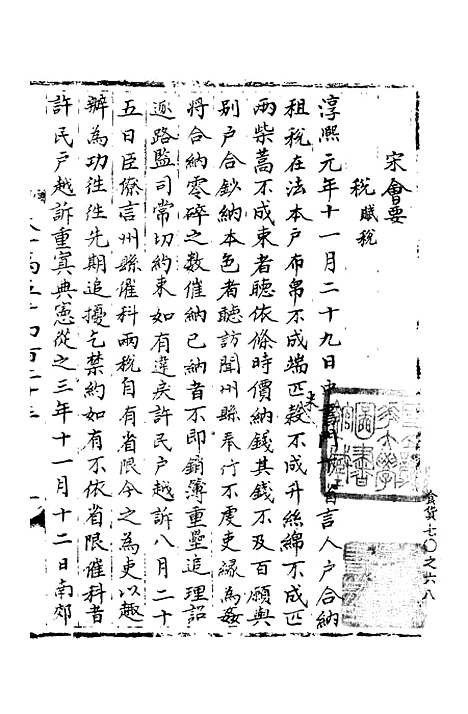 宋會要
稅 賦稅
淳熙元年十一月二十九日中書門下省言人戶合納
租稅在法本戶布帛不成端匹穀不成升絲綿不成匹
兩柴蒿不成束者聽依條時價納錢其錢不及百願與
別戶合鈔納本色者聽訪聞州縣奉行不虔吏緣為姦
將合納零碎之數催納已納者不即銷簿重疊追理詔
逐路監司常切約束如有違戾許民戶越訴八月二十
五日臣僚言州縣催科兩稅自有省限今之為吏以趣
辦為功往往先期追擾乞禁約如有不依省限催科者
許民戶越訴重寘典憲從之三年十一月十二日南郊
食貨七〇之六八